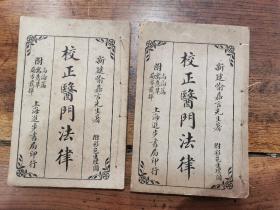 新建喻嘉言先生著
校正醫門法律
附
尚論篇
寓意草
上海進步書局印行
新建喻嘉言先生著
校正醫門法律
附
尚論篇
寓意草
上海進步書局印行